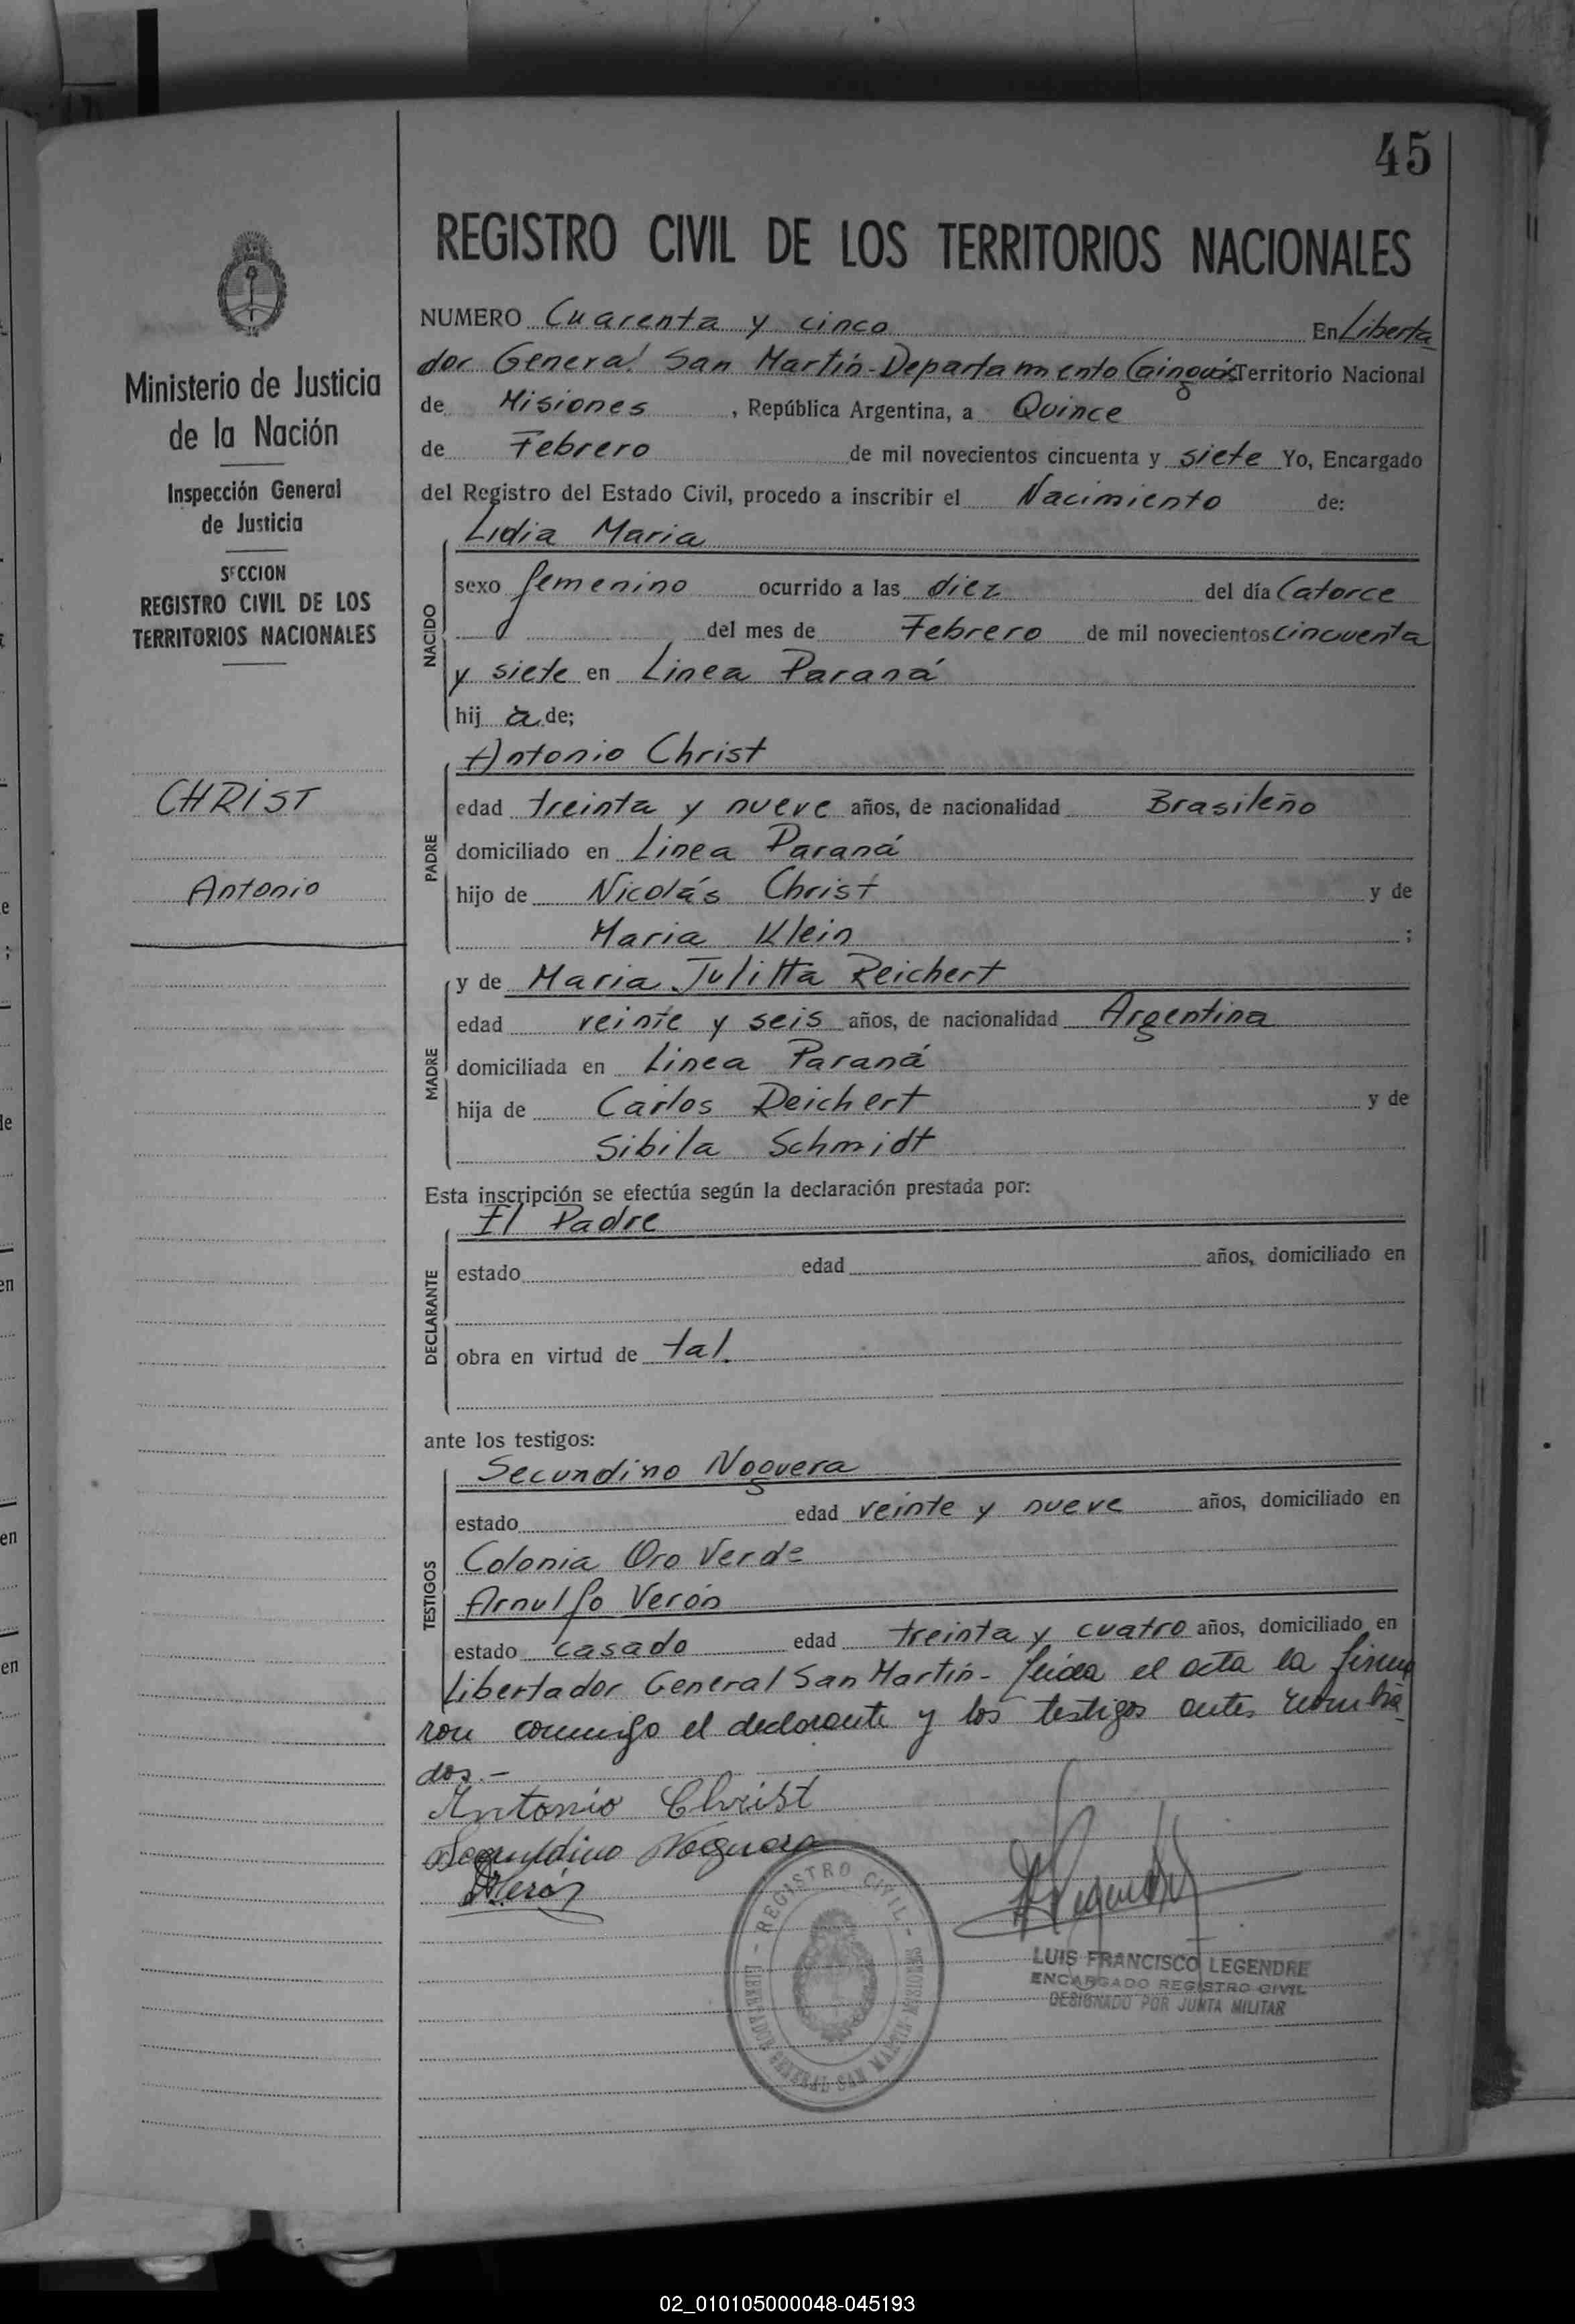 45
REGISTRO CIVIL DE LOS TERRITORIOS NACIONALES
Ministerio de Justicia
de la Nación
Inspección General
de Justicia
SECCION
REGISTRO CIVIL DE LOS
TERRITORIOS NACIONALES
CHRIST
Antonio
NUMERO Cuarenta y cinco En Liberta
dor General San Martín - Departamento Cainguás Territorio Nacional
de Misiones, República Argentina, a Quince
de Febrero de mil novecientos cincuenta y siete Yo, Encargado
del Registro del Estado Civil, procedo a inscribir el Nacimiento de:
NACIDO
Lidia Maria
sexo femenino ocurrido a las diez del día Catorce
del mes de Febrero de mil novecientos cincuenta
y siete en Linea Paraná
hij a de;
PADRE
Antonio Christ
edad treinta y nueve años, de nacionalidad Brasileño
domiciliado en Linea Paraná
hijo de Nicolás Christ y de
Maria Klein ;
MADRE
y de Maria Julitta Reichert
edad veinte y seis años, de nacionalidad Argentina
domiciliada en Linea Paraná
hija de Carlos Reichert y de
Sibila Schmidt
Esta inscripción se efectúa según la declaración prestada por:
DECLARANTE
El Padre
estado edad años, domiciliado en
obra en virtud de tal.
ante los testigos:
TESTIGOS
Secundino Noguera
estado edad veinte y nueve años, domiciliado en
Colonia Oro Verde
Arnulfo Verón
estado casado edad treinta y cuatro años, domiciliado en
Libertador General San Martín - Leída el acta la firma
ron conmigo el declarante y los testigos antes nombra
dos.-
Antonio Christ
Secundino Noguera
Verón
REGISTRO CIVIL
LIBERTADOR GENERAL SAN MARTIN MISIONES
LUIS FRANCISCO LEGENDRE
ENCARGADO REGISTRO CIVIL
DESIGNADO POR JUNTA MILITAR
02_010105000048-045193